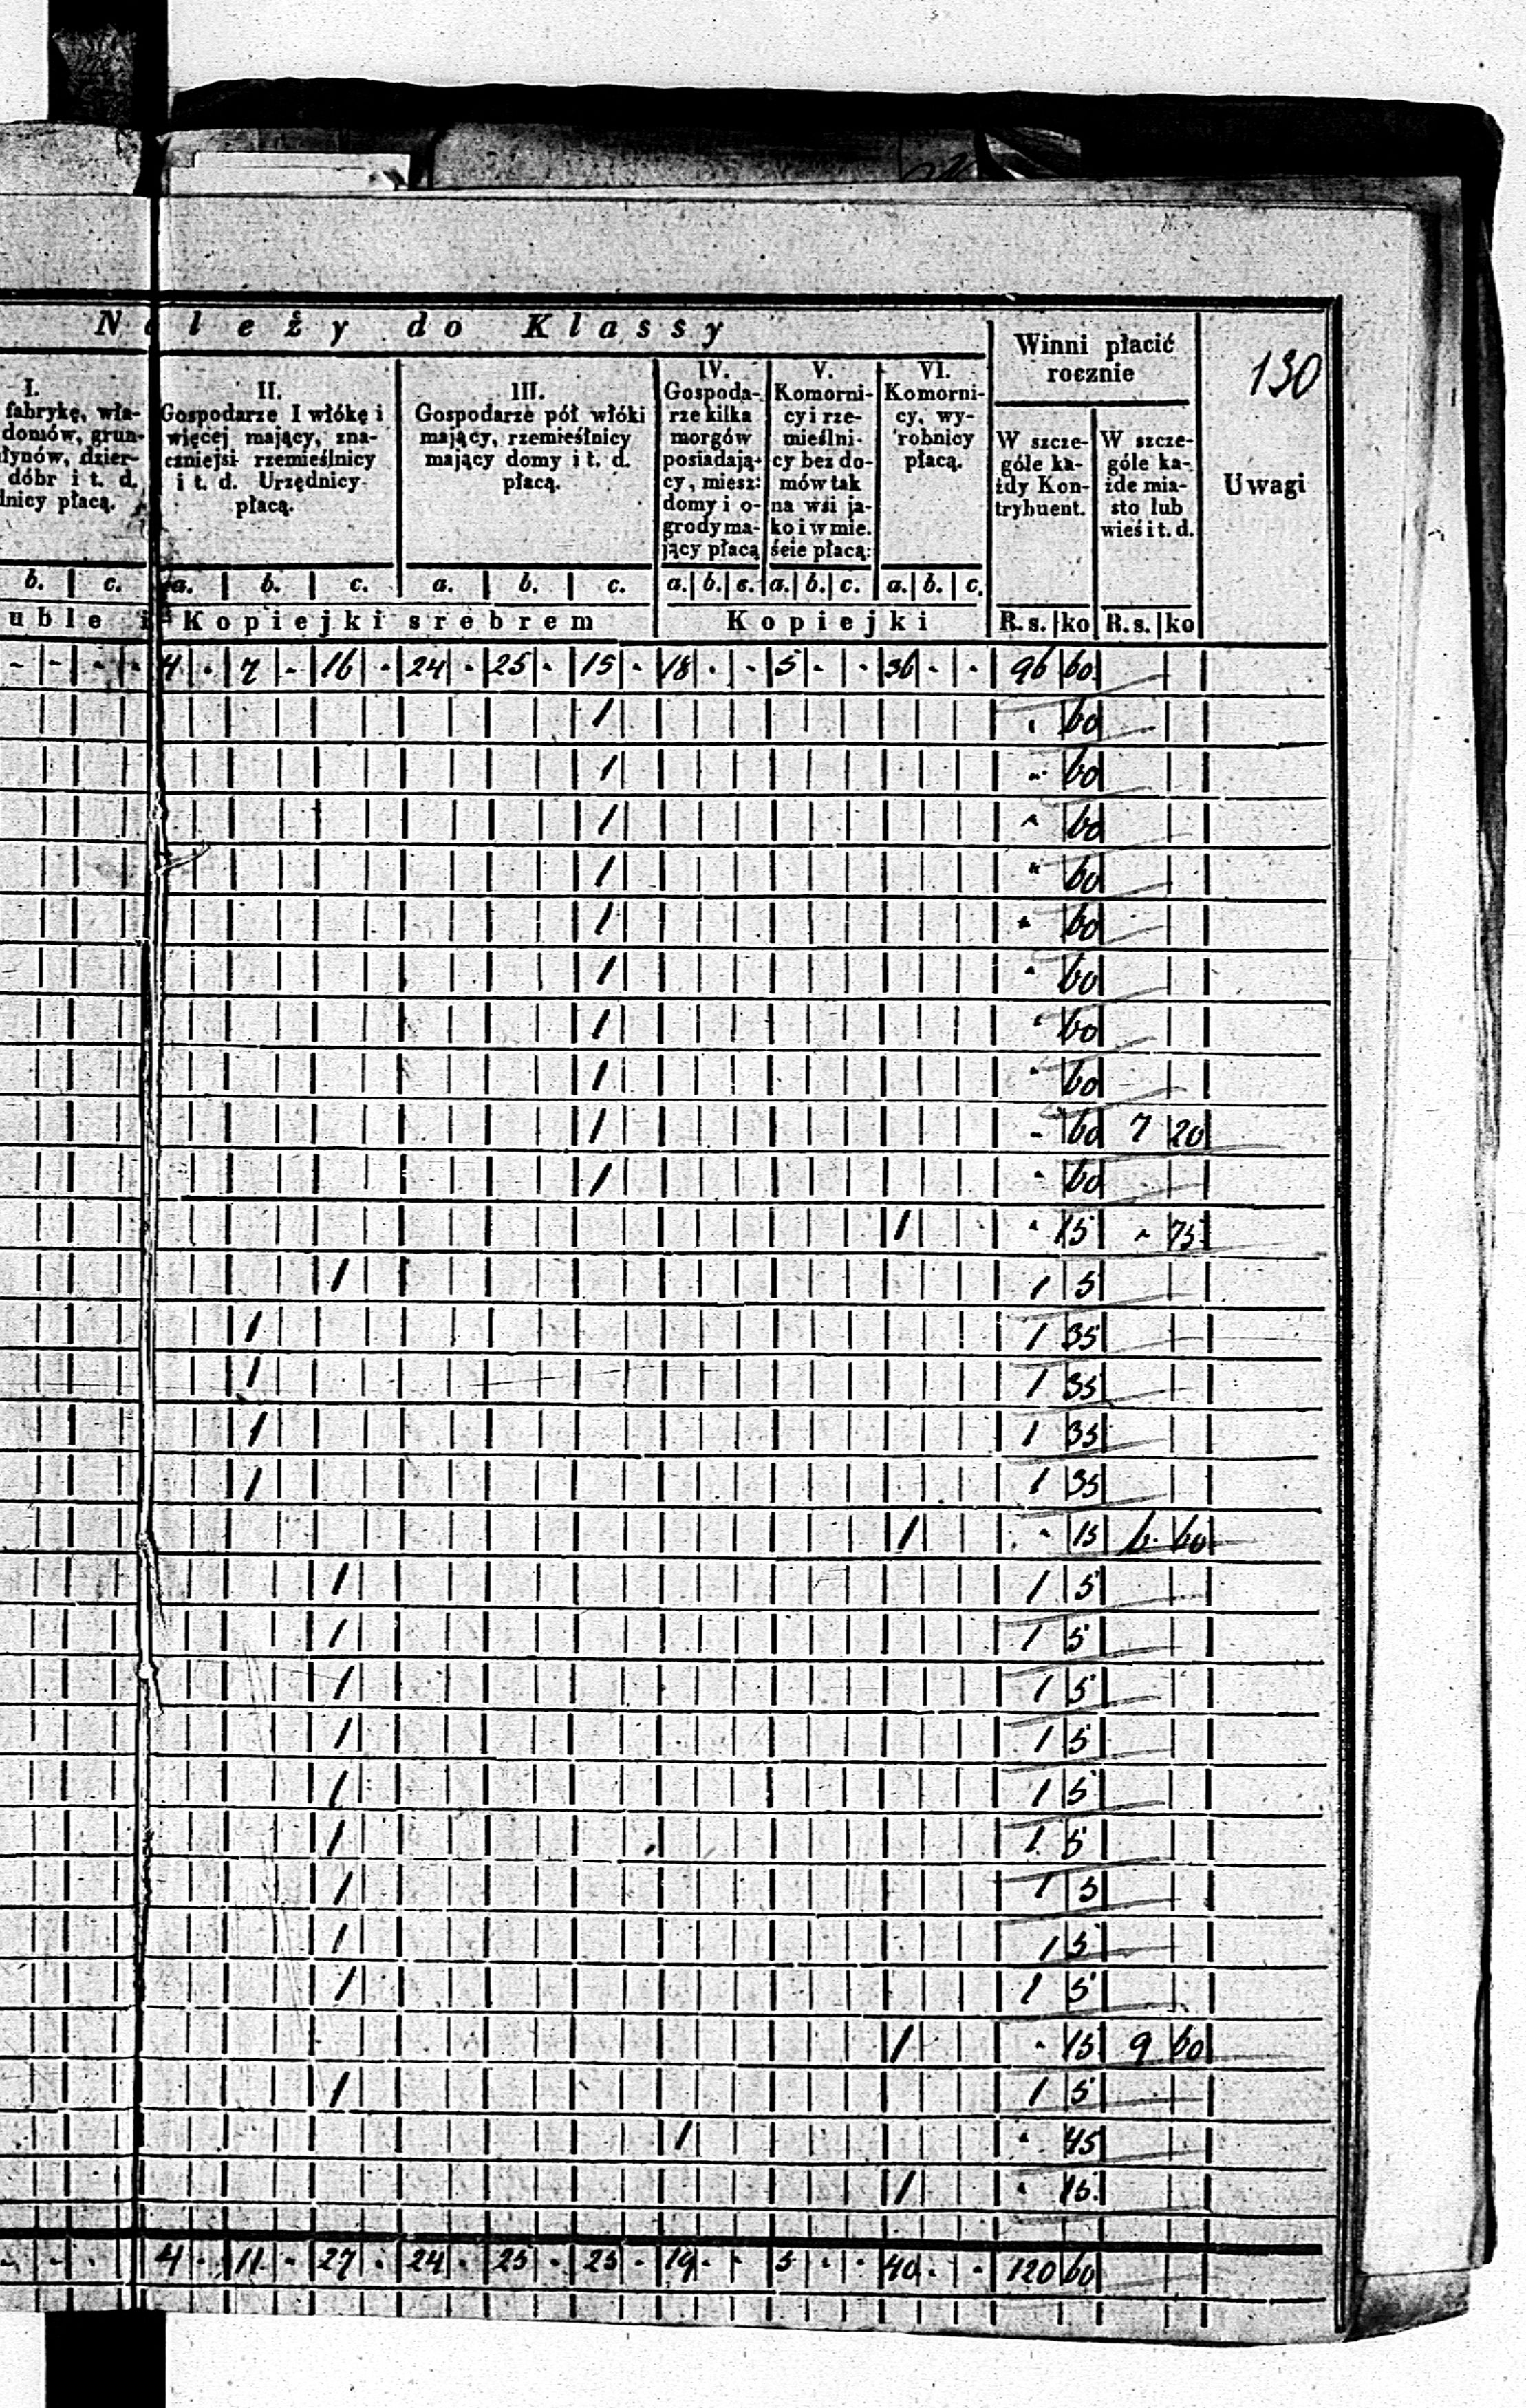 Należy do Klassy
Winni płacić rocznie
130
I.
fabrykę, wła-
domów, grun-
łynów, dzier-
dóbr i t. d.
lnicy płacą.
II.
Gospodarze I włókę i
więcej mający, zna-
czniejsi rzemieślnicy
i t. d. Urzędnicy
płacą.
III.
Gospodarze pół włóki
mający, rzemieślnicy
mający domy i t. d.
płacą.
IV.
Gospoda-
rze kilka
morgów
posiadają-
cy, miesz:
domy i o-
grody ma-
jący płacą
V.
Komorni-
cy i rze-
mieślni-
cy bez do-
mów tak
na wsi ja-
ko i w mie.
ście płacą:
VI.
Komorni-
cy, wy-
robnicy
płacą.
W szcze-
góle ka-
żdy Kon-
trybuent.
W szcze-
góle ka-
żde mia-
sto lub
wieś i t. d.
Uwagi
b. c. a. b. c. a. b. c. a. b. c. a. b. c. a. b. c.
uble i Kopiejki srebrem Kopiejki R. s. ko R. s. ko
- - - - 4 . 7 - 16 . 24 . 25 . 15 . 18 . - 5 - . 36 - . 96 60
1 . 60
1 - 60
1 - 60
1 " 60
1 - 60
1 - 60
1 . 60
1 . 60
1 - 60 7 20
1 - 60
1 - 15 - 75
1 1 5
1 1 35
1 1 35
1 1 35
1 1 35
1 - 15 6 60
1 1 5
1 1 5
1 1 5
1 1 5
1 1 5
1 1 5
1 1 5
1 1 5
1 1 5
1 - 15 9 60
1 1 5
1 . 45
1 . 15
- - . 4 . 11 - 27 . 24 . 25 . 25 . 19 . - 5 . . 40 . . 120 60